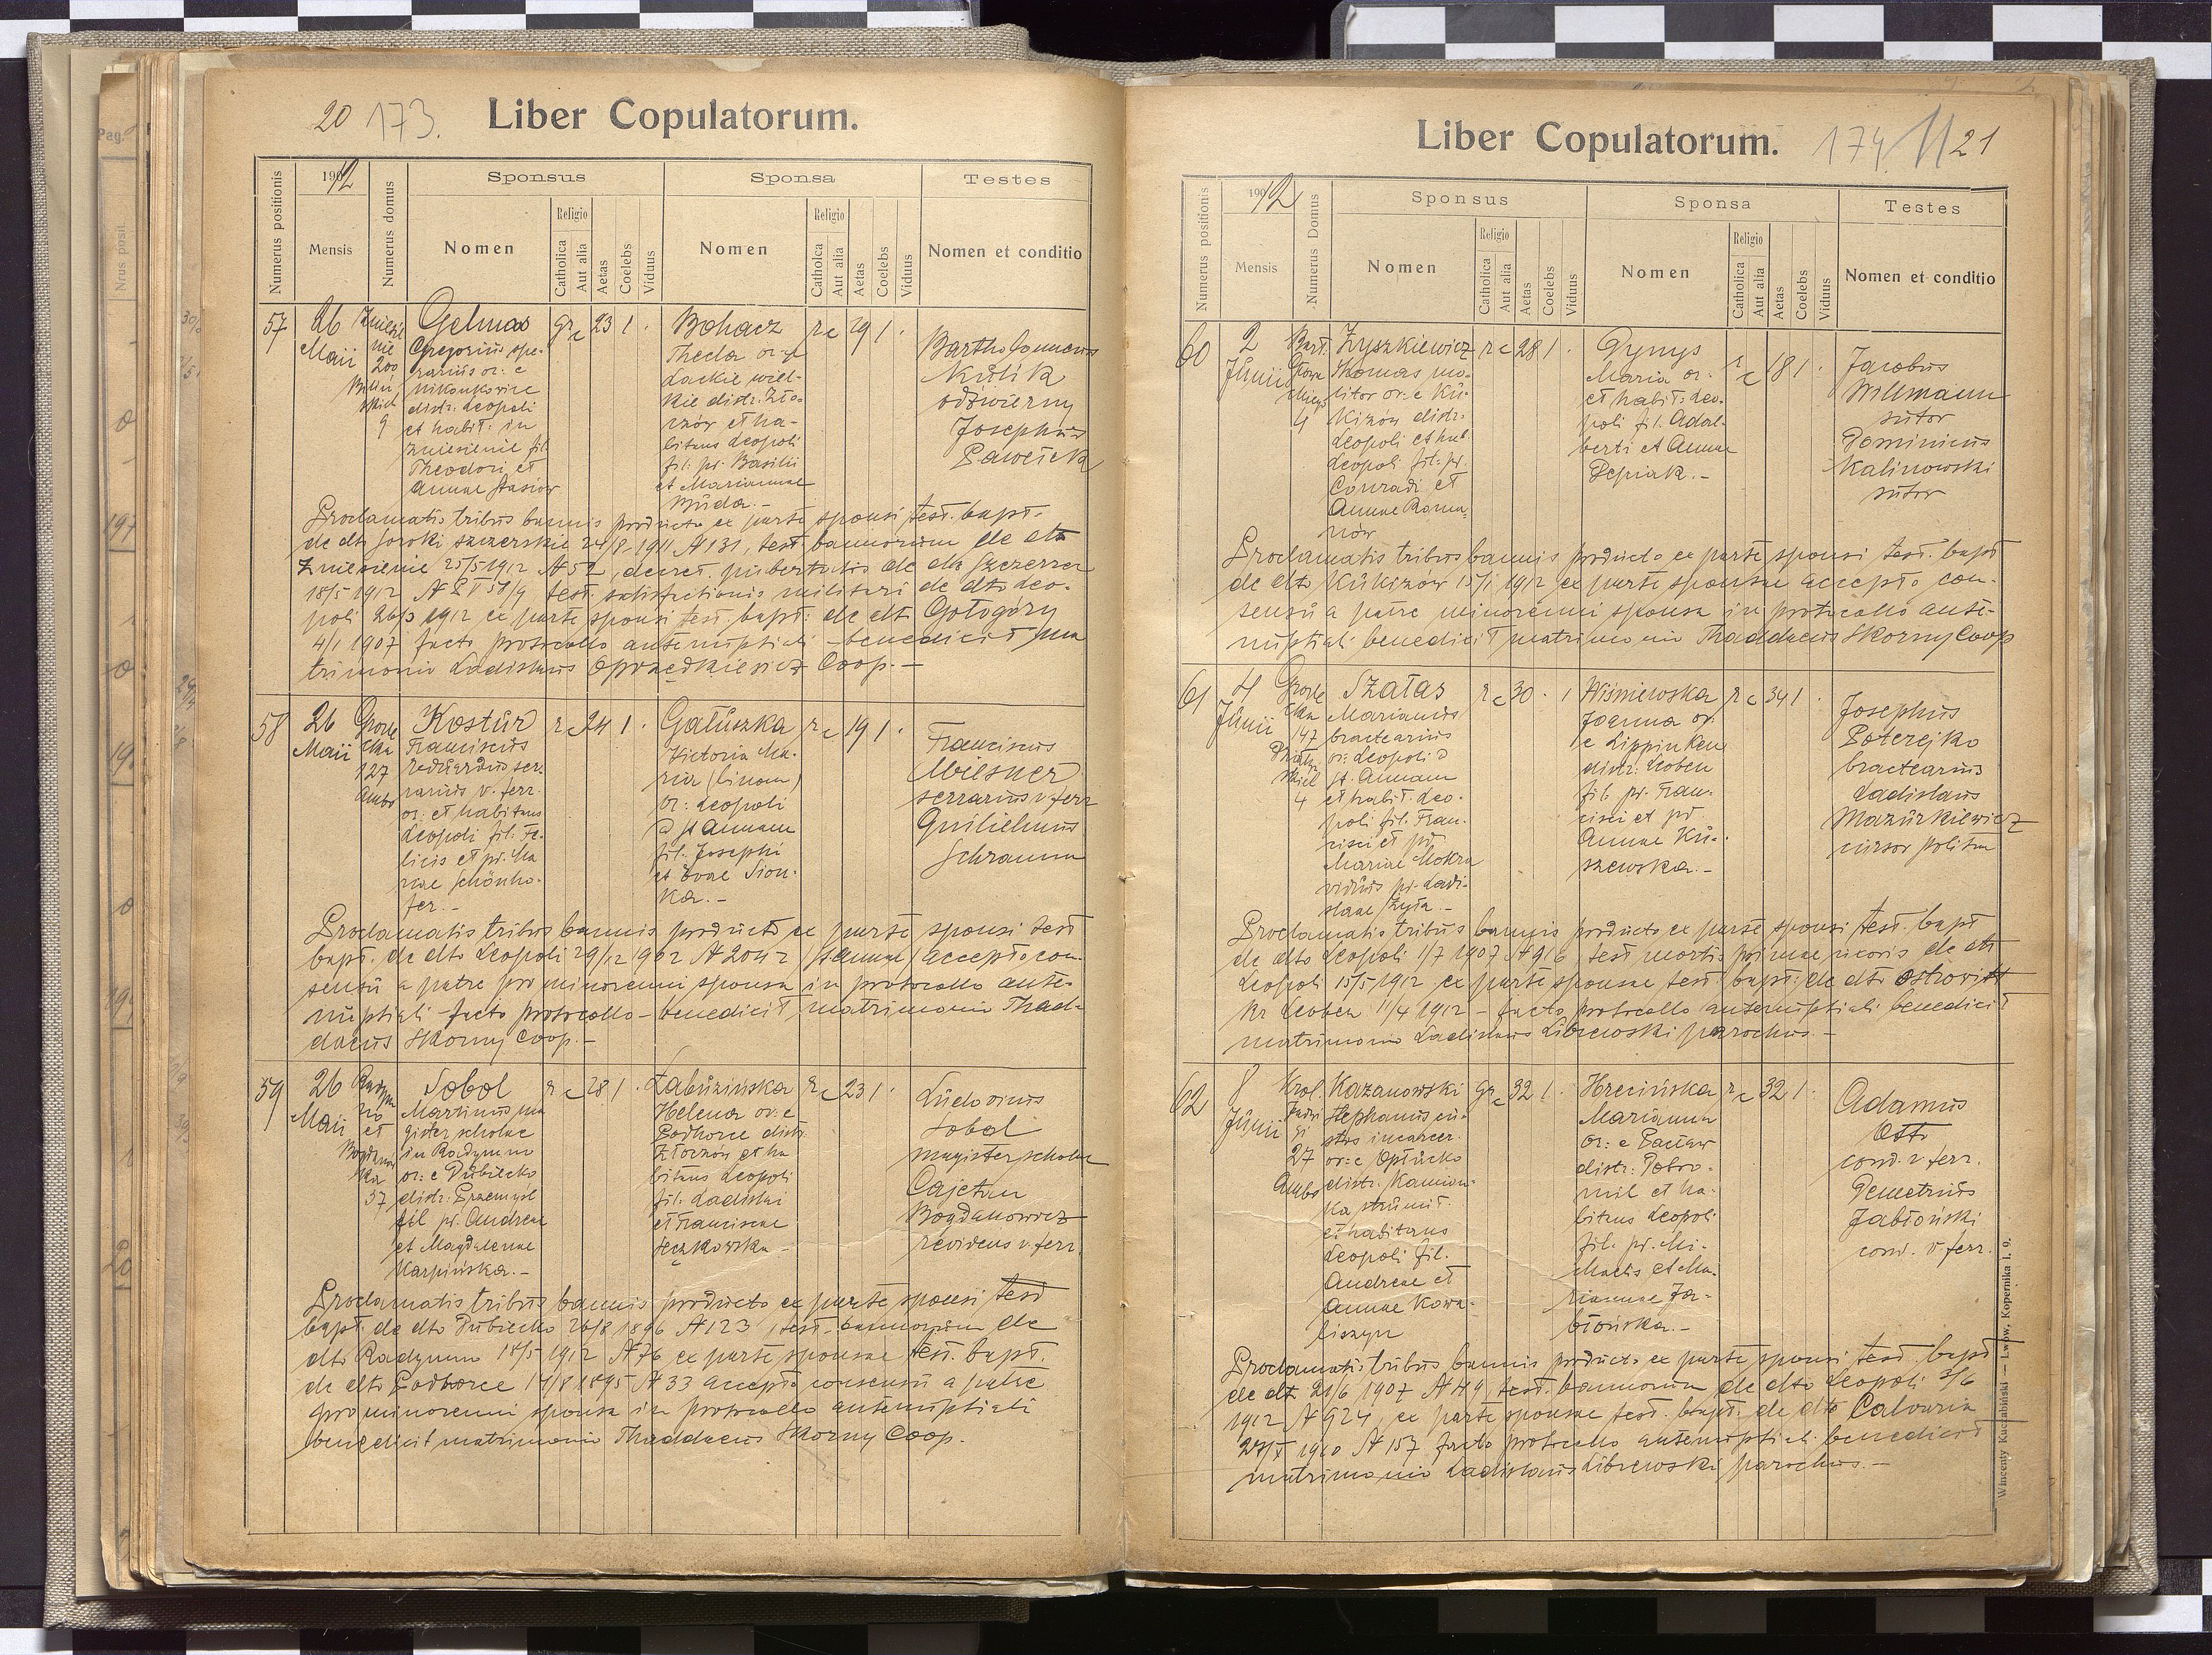 20 173.
Liber Copulatorum.
Numerus positionis
1912
Mensis
Numerus domus
Sponsus
Nomen
Religio
Catholica
Aut alia
Aetas
Coelebs
Viduus
Sponsa
Nomen
Religio
Catholca
Aut alia
Aetas
Coelebs
Viduus
Testes
Nomen et conditio
57
26
Maii
Zniesie
nie
200
9
Gelmas
Gregorius
or: e
distr. Leopoli
et habit: in
Zniesienie fil.
Theodori et
Annae Stasiów
gr c 23 1 .
Bohacz
Thecla or: e
Lackie wiel-
kie distr. Zło-
czów et ha-
bitans Leopoli
fil: pr. Basilii
et Mariannae
Buda.-
rc 29 1 .
Bartholomeus
Kulik
odźwierny
Josephus
Pawęcick
Proclamatis tribus bannis producto ex parte sponsi test. bapt.
de dto 24/8 1911 N 131, test. bannorum de dto
Zniesienie 25/5 1912 N 52, decret. pubertatis de dto Szczerzec
18/5 1912 test. satisfactionis militari de dto Leo-
poli 26/3 1912 ex parte sponsi test. bapt: de dto Gołogóry
4/1 1907 facto protocollo antenuptiali - benedicit ma
trimonio Ladislaus Oprzędkiewicz Coop.-
58
26
Maii
Grode
cka
127
Ambo
Kostur
Franciscus
ser-
rarius v. ferr.
or: et habitans
Leopoli fil. Fe-
licis et pr. Ma
riae Schönho-
fer.-
rc 24 1 .
Gałuszka
Victoria Ma-
ria (binom)
or: Leopoli
ad St Annam
fil. Josephi
et Evae Sion-
ka.-
rc 19 1 .
Franciscus
Milsner
serrarius v. ferr
Guilielmus
Schramm
Proclamatis tribus bannis producto ex parte sponsi test
bapt. de dto Leopoli 29/12 902 N 2042 (S Annae) accepto con-
sensu a patre pro minorenni sponsa in protocollo ante-
nuptiali - facto protocollo - benedicit matrimonio Thad-
daeus Skorny Coop.-
59
26
Maii
Radym
no
et
Bogdanow
ka
37
Sobol
Martinus ma
gister scholae
in Radymno
or: e Dubiecko
distr. Przemyśl
fil pr. Andreae
et Magdalenae
Karpińska.-
rc 28 1 .
Zabuzińska
Helena or: e
Podhorce distr.
Złoczów et ha
bitans Leopoli
fil: Ladislai
et Franciscae
Jeczkowska-
rc 23 1 .
Ludovicus
Sobol
magister scholae
Cajetan
Bogdanowicz
revidens v. ferr.
Proclamatis tribus bannis producto ex parte sponsi test
bapt. de dto Dubiecko 26/8 1896 N 123, test. bannorum de
dto Radymno 18/5 1912 N 76 ex parte sponsae test. bapt.
de dto Podhorce 14/8 1895 N 33 accepto consensu a patre
pro minorenni sponsa in protocollo antenuptiali
benedicit matrimonio Thaddaeus Skorny Coop.
Liber Copulatorum.
174. 21
Numerus positionis
1912
Mensis
Numerus Domus
Sponsus
Nomen
Religio
Catholica
Aut alia
Aetas
Coelebs
Viduus
Sponsa
Nomen
Religio
Catholica
Aut alia
Aetas
Coelebs
Viduus
Testes
Nomen et conditio
60
2
Junii
Bart.
Głowa
ckiego
4
Zyszkiewicz
Thomas mo-
litor or: e Ku-
kizów distr.
Leopoli et hab.
Leopoli fil: pr.
Conradi et
Annae Roma-
nów
rc 28 1 .
Dynys
Maria or:
et habit: Leo-
poli fil. Adal-
berti et Annae
Pepiak.-
rc 18 1 .
Jacobus
Willmann
sutor
Dominicus
Kalinowski
sutor
Proclamatis tribus bannis producto ex parte sponsi test. bapt
de dto Kukizow 15/1 1912 ex parte sponsae accepto con-
sensu a patre minorenni sponsa in protocollo ante-
nuptiali benedicit matrimonio Thaddaeus Skorny Coop
61
4
Junii
Grode
cka
147
4
Szałas
Marianus
bractearius
or: Leopoli ad
St. Annam
et habit. Leo-
poli fil. Fran-
cisci et pr.
Mariae Mokra
viduus pr. Ladi-
slaae Żyła.-
rc 30 . 1
Wiśniewska
Joanna or:
e Lippinken
distr: Leoben
fil. pr. Fran-
cisci et pr
Annae Ku-
szewska.-
rc 34 1 .
Josephus
Poterejko
bractearius
Ladislaus
Mazurkiewicz
cursor
Proclamatis tribus bannis producto ex parte sponsi test. bapt
de dto Leopoli 1/7 1907 N 916, test mortis primae uxoris de dto
Leopoli 15/5 1912 ex parte sponsae test. bapt: de dto Ostrowitt
Kr Leoben 11/4 1912 - facto protocollo antenuptiali benedicit
matrimonio Ladislaus Librewski parochus.-
62
8
Junii
Krol.
Jadwi
gi
27
Ambo
Kazanowski
Stephanus cu-
stos incarcer.
or: e Opłucko
distr. Kamion-
ka strumił.
et habitans
Leopoli fil.
Andreae et
Annae Kowa-
liszyn
gr c 32 1 .
Hrecińska
Marianna
or: e Pacław
distr: Dobro-
mil et ha-
bitans Leopoli
fil. pr. Mi-
chaelis et Ma-
riannae Ja-
błońska.-
rc 32 1 .
Adamus
Otto
cond. v ferr.
Demetrius
Jabłoński
cond. v ferr.
Proclamatis tribus bannis producto ex parte sponsi test. bapt
de dto 21/6 1907 N 119, test. bannorum de dto Leopoli 3/6
1912 N 924, ex parte sponsae test. bapt. de dto Calvaria
1910 N 157 facto protocollo antenuptiali benedicit
matrimonio Ladislaus Librewski parochus.-
Wincenty Kuczabiński — Lwów, Kopernika l. 9.